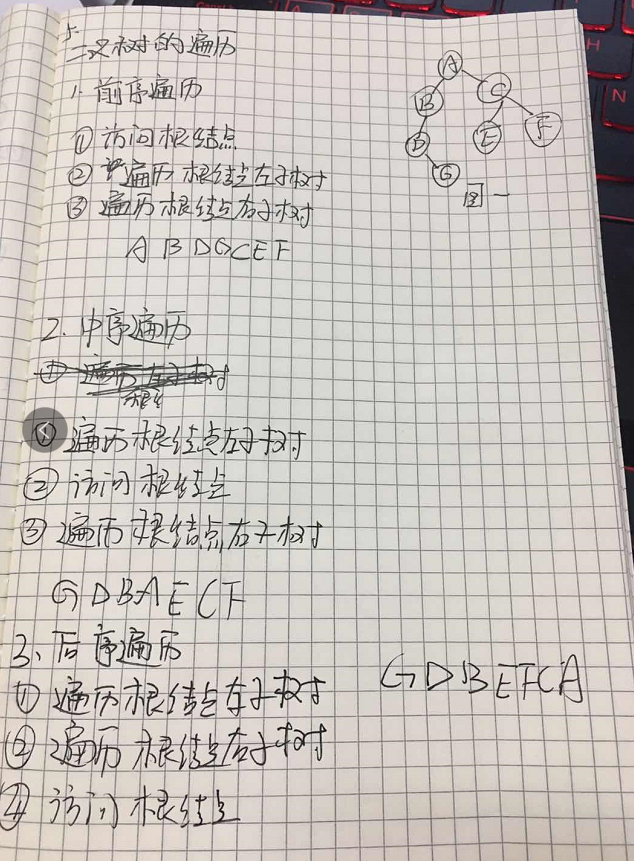 二叉树的遍历
1. 前序遍历
① 访问根结点
② 遍历根结点左子树
③ 遍历根结点右子树
A B D G C E F
A
B
C
D
E
F
G
图一
2. 中序遍历
① 遍历左子树
根结
① 遍历根结点左子树
② 访问根结点
③ 遍历根结点右子树
G D B A E C F
3、后序遍历
① 遍历根结点左子树
② 遍历根结点右子树
④ 访问根结点
G D B E F C A
H
N